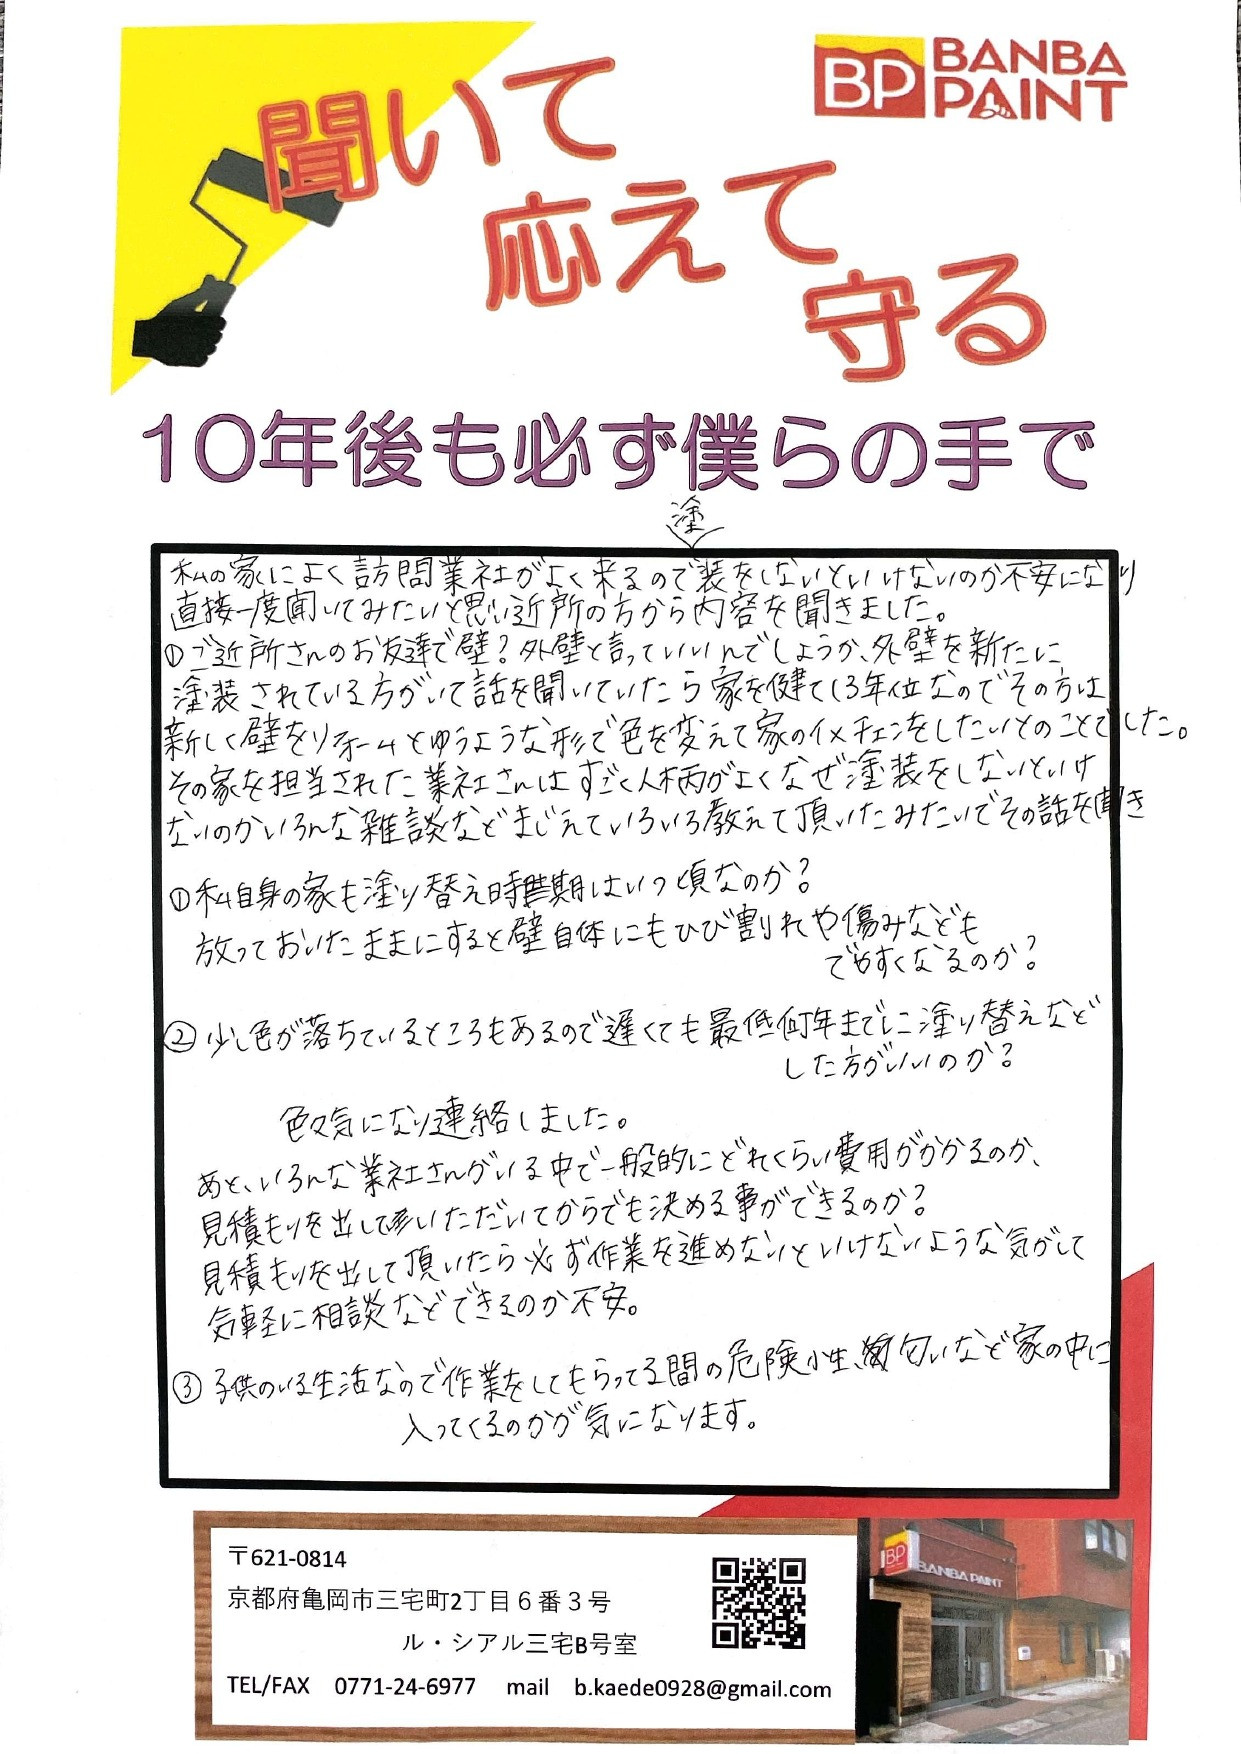 BP BANBA
PAINT
聞いて
応えて
守る
10年後も必ず僕らの手で
塗
私の家によく訪問業社がよく来るので装をしないといけないのか不安になり
直接一度聞いてみたいと思い近所の方から内容を聞きました。
①ご近所さんのお友達で壁?外壁と言っていいんでしょうか、外壁を新たに
塗装されている方がいて話を聞いていたら家を健てし3年位なのでその方は
新しく壁をリフォームとゆうような形で色を変えて家のイメチェンをしたいとのことでした。
その家を担当された業社さんはすごく人柄がよくなぜ塗装をしないといけ
ないのかいろんな雑談などまじえていろいろ教えて頂いたみたいでその話を聞き
①私自身の家も塗り替え時期はいつ頃なのか?
放っておいたままにすると壁自体にもひび割れや傷みなども
でやすくなるのか?
②少し色が落ちているところもあるので遅くても最低何年までに塗り替えなど
した方がいいのか?
色々気になり連絡しました。
あと、いろんな業社さんがいる中で一般的にどれくらい費用がかかるのか、
見積もりを出していただいてからでも決める事ができるのか?
見積もりを出して頂いたら必ず作業を進めないといけないような気がして
気軽に相談などできるのか不安。
③子供のいる生活なので作業をしてもらってる間の危険性、匂いなど家の中に
入ってくるのかが気になります。
〒621-0814
京都府亀岡市三宅町2丁目6番3号
ル・シアル三宅B号室
TEL/FAX 0771-24-6977 mail b.kaede0928@gmail.com
BP BANBA PAINT